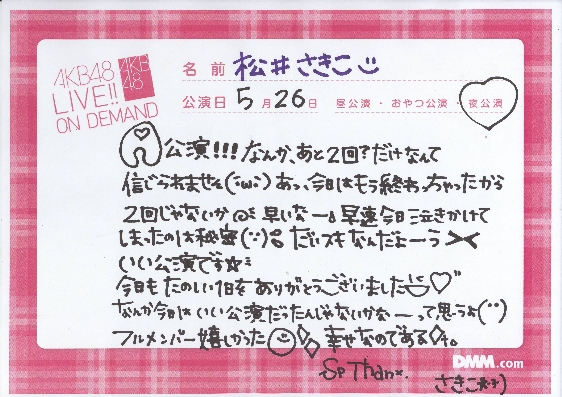 AKB48
LIVE!!
ON DEMAND
AKB
48
名前 松井さきこ
公演日 5月26日 昼公演・おやつ公演・夜公演
A公演!!!なんか、あと2回?だけなんて
信じられません(´;ω;`)あっ、今日はもう終わっちゃったから
2回じゃないか 早いなー。早速今日泣きかけて
しまったのは秘密(´;`) だいスキなんだよーう
いい公演です☆
今日もたのしい1日をありがとうございました♡
なんか今日はいい公演だったんじゃないかなーって思うよ(¨)
フルメンバー嬉しかった 幸せなのである。
Sp Thanx.
さきこ
DMM.com